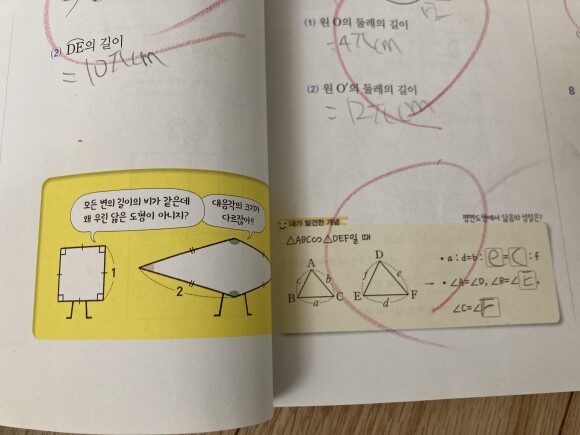 (2) DE의 길이
= 10πcm
모든 변의 길이의 비가 같은데
왜 우린 닮은 도형이 아니지?
대응각의 크기가
다르잖아!!
1
2
12
(1) 원 O의 둘레의 길이
= 4πcm
(2) 원 O′의 둘레의 길이
= 12πcm
8
내가 발견한 개념
평면도형에서 닮음의 성질은?
△ABC∽△DEF일 때
A
c b
B a C
D
f e
E d F
• a : d = b : e = c : f
→ • ∠A=∠D, ∠B=∠E,
∠C=∠F